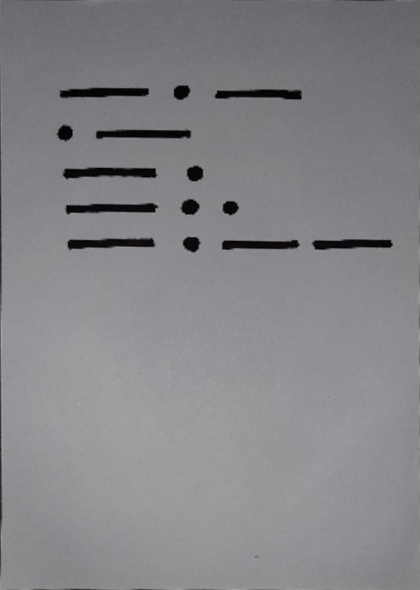 — • —
• —
— •
— • •
— • — —